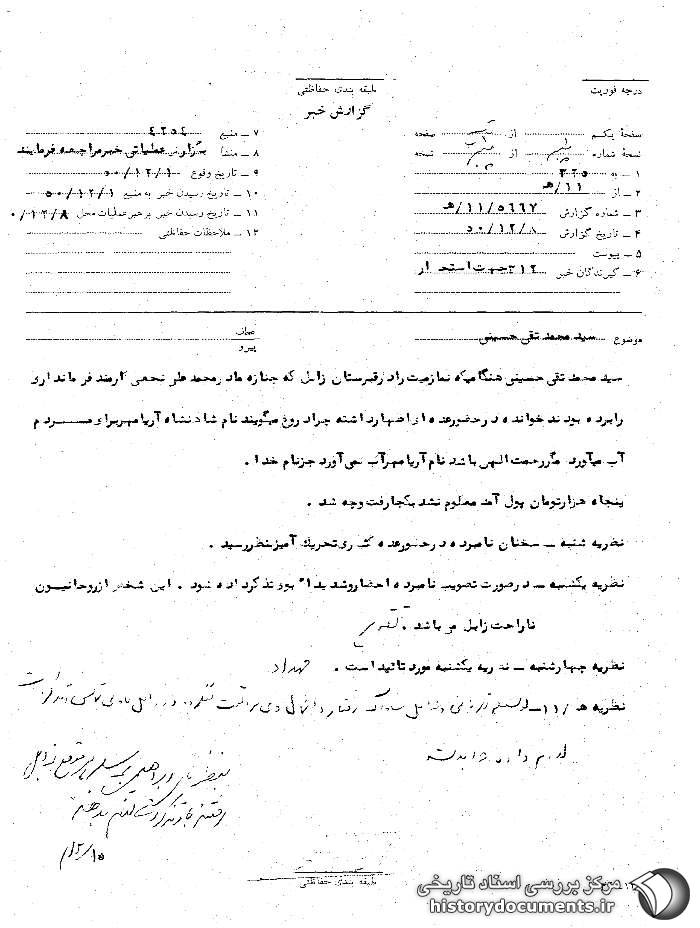 درجه فوریت
طبقه بندی حفاظتی
گزارش خبر
صفحهٔ یکم از صفحه
نسخهٔ شماره از نسخه
۱ – به ۳۲۵
۲ – از ۱۱/هـ
۳ – شماره گزارش ۵۶۶۷/۱۱/هـ
۴ – تاریخ گزارش ۵۰/۱۲/۸
۵ – پیوست
۶ – گیرندگان خبر ۳۱۲ جهت استحضار
۷ – منبع ۴۲۵۴
۸ – منشأ عملیاتی خبر مراجعه فرمایند
۹ – تاریخ وقوع ۵۰/۱۲/۱
۱۰ – تاریخ رسیدن خبر به منبع ۵۰/۱۲/۱
۱۱ – تاریخ رسیدن خبر به رهبر عملیات محل ۵۰/۱۲/۸
۱۲ – ملاحظات حفاظتی
موضوع سید محمد تقی حسینی
عطف
پیرو
سید محمد تقی حسینی هنگامیکه نماز میت را در قبرستان زابل که جنازه مادر محمد علی نخعی کارمند فرمانداری
را برده بودند خوانده در حضور عده ای اظهار داشته چرا دروغ میگویند نام شاهنشاه آریامهر برای مردم
آب میآورد مگر رحمت الهی باشد نام آریامهر آب نمی آورد جز نام خدا .
پنجاه هزار تومان پول آمد معلوم نشد بکجا رفت و چه شد .
نظریه شنبه – سخنان نامبرده در حضور عده کثیری تحریک آمیز بنظر رسید .
نظریه یکشنبه – در صورت تصویب نامبرده احضار و شدیداً بوی تذکر داده شود . این شخص از روحانیون
ناراحت زابل می باشد .
نظریه چهارشنبه – نظریه یکشنبه مورد تائید است . مهرداد
نظریه هـ /۱۱ – ساواک رفتار و اعمال وی مراقبت
۱۲/۱۰
طبقه بندی حفاظتی
مرکز بررسی اسناد تاریخی
historydocuments.ir